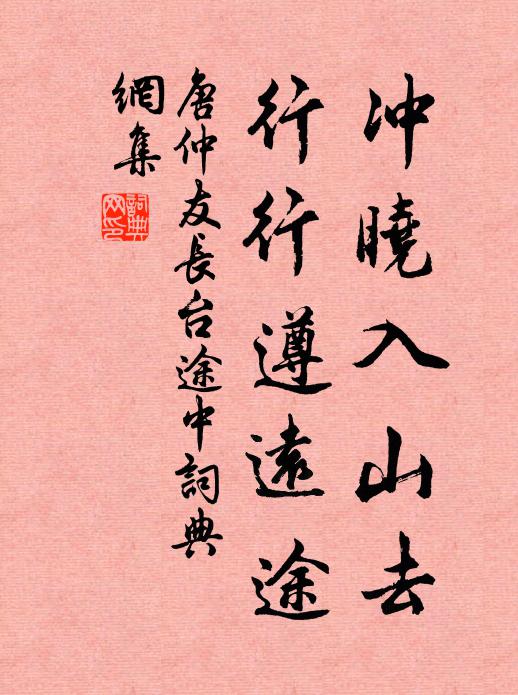 冲曉入山去
行行遵遠途
唐仲友長台途中詞典
網集
詞典
网印